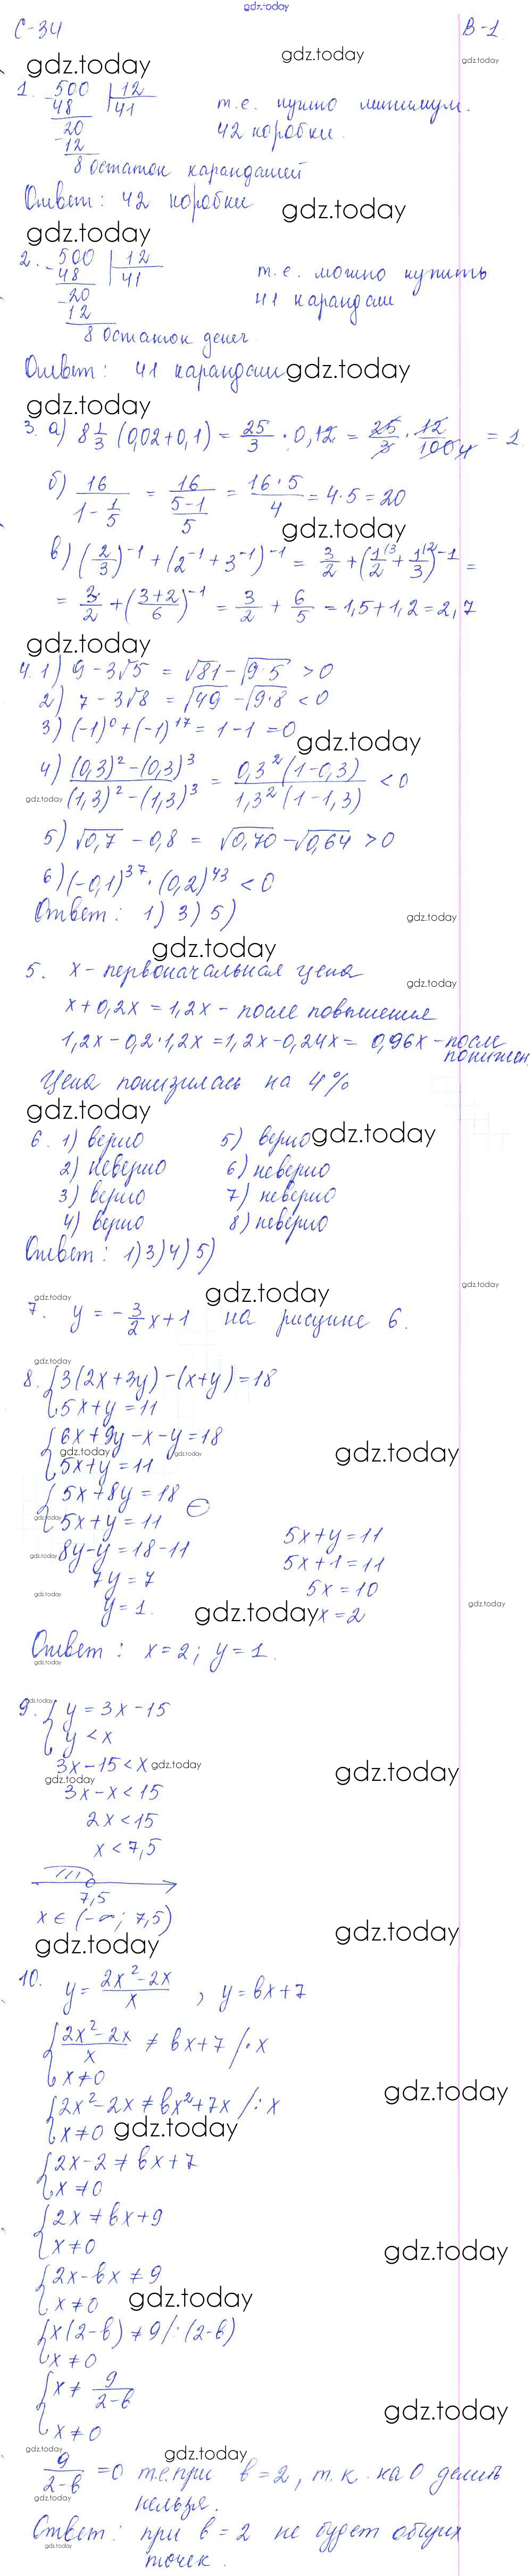 gdz.today
С-34 В-1
gdz.today gdz.today gdz.today
1. 500 | 12
- 48 | 41 т.е. нужно минимум
20 42 коробки.
- 12
8 остаток карандашей
Ответ: 42 коробки gdz.today
gdz.today
2. 500 | 12
- 48 | 41 т.е. можно купить
- 20 41 карандаш
12
8 остаток денег
Ответ: 41 карандаш gdz.today
gdz.today
3. а) 8 1/3 (0,02+0,1) = 25/3 · 0,12 = 25/3 · 12/100 4 = 1
б) 16/(1 - 1/5) = 16/((5-1)/5) = 16·5/4 = 4·5 = 20
gdz.today
в) (2/3)^-1 + (2^-1 + 3^-1)^-1 = 3/2 + (1/2 ^3 + 1/3 ^2)^-1 =
= 3/2 + ((3+2)/6)^-1 = 3/2 + 6/5 = 1,5+1,2 = 2,7
gdz.today
4. 1) 9 - 3√5 = √81 - √9·5 > 0
2) 7 - 3√8 = √49 - √9·8 < 0
3) (-1)^0 + (-1)^17 = 1 - 1 = 0
gdz.today
4) ((0,3)^2 - (0,3)^3)/((1,3)^2 - (1,3)^3) = 0,3^2 (1-0,3)/1,3^2 (1-1,3) < 0
gdz.today
5) √0,7 - 0,8 = √0,70 - √0,64 > 0
6) (-0,1)^37 · (0,2)^43 < 0
Ответ: 1) 3) 5) gdz.today
gdz.today
5. x - первоначальная цена gdz.today
x + 0,2x = 1,2x - после повышения
1,2x - 0,2·1,2x = 1,2x - 0,24x = 0,96x - после
понижен
Цена понизилась на 4%
gdz.today
6. 1) верно 5) верно gdz.today
2) неверно 6) неверно
3) верно 7) неверно
4) верно 8) неверно
Ответ: 1) 3) 4) 5)
gdz.today gdz.today gdz.today
7. y = - 3/2 x + 1 на рисунке 6.
gdz.today
8. { 3(2x+3y) - (x+y) = 18
5x + y = 11
{ 6x + 9y - x - y = 18
gdz.today gdz.today gdz.today
5x + y = 11
{ 5x + 8y = 18 ⊖
gdz.today
5x + y = 11
gdz.today 8y - y = 18 - 11 5x + y = 11
7y = 7 5x + 1 = 11
gdz.today 5x = 10
y = 1. gdz.today x = 2 gdz.today
Ответ: x = 2; y = 1.
gdz.today
gdz.today
9. { y = 3x - 15
y < x
3x - 15 < x gdz.today gdz.today
gdz.today
3x - x < 15
2x < 15
x < 7,5
7,5
x ∈ (-∞; 7,5) gdz.today
gdz.today
10. y = (2x^2 - 2x)/x , y = bx + 7
{ (2x^2 - 2x)/x ≠ bx + 7 /·x
x ≠ 0
{ 2x^2 - 2x ≠ bx^2 + 7x /:x gdz.today
x ≠ 0 gdz.today
{ 2x - 2 ≠ bx + 7
x ≠ 0
{ 2x ≠ bx + 9
x ≠ 0 gdz.today
{ 2x - bx ≠ 9
x ≠ 0 gdz.today
{ x(2-b) ≠ 9 /:(2-b)
x ≠ 0
{ x ≠ 9/(2-b)
x ≠ 0 gdz.today
gdz.today gdz.today
9/(2-b) = 0 т.е. при b = 2, т.к. на 0 делить
gdz.today
нельзя.
Ответ: при b = 2 не будет общих
gdz.today
точек.